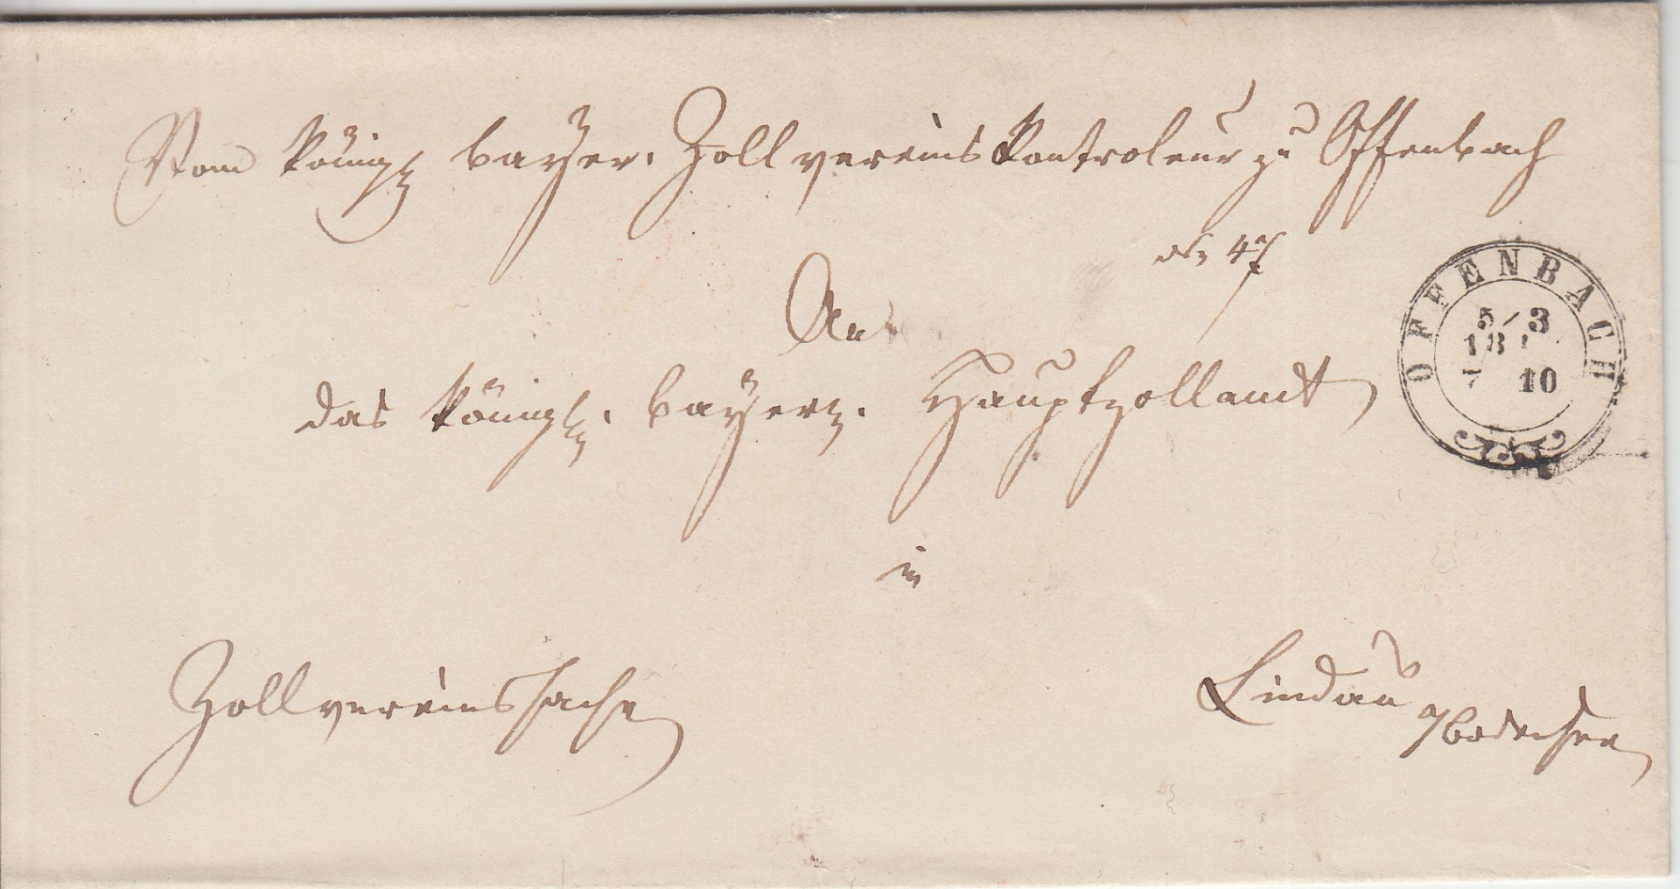 Vom königl. bayer. Zollvereins Kontroleur zu Offenbach
No 47
An
das königl. bayer. Hauptzollamt
in
Zollvereinssache
Lindau
a/Bodensee
OFFENBACH
5/3
18
10